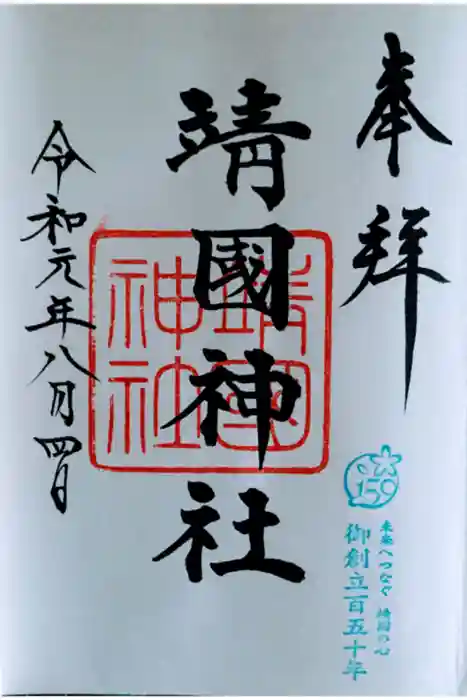 奉拜
靖國神社
靖國
神社
令和元年八月四日
150
未来へつなぐ 靖国の心
御創立百五十年